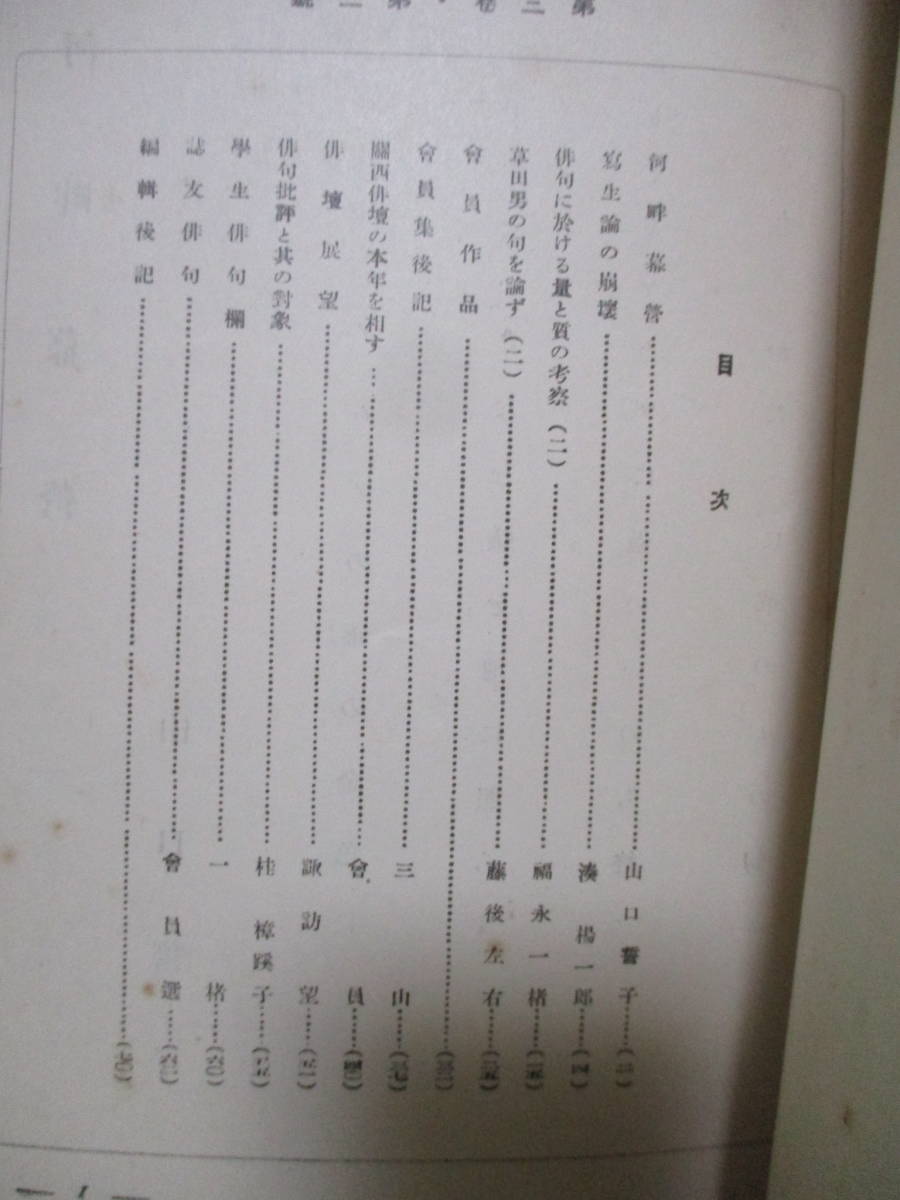 第三卷・第一號
目次
河畔幕營……山口誓子
寫生論の崩壞……湊楊一郎
俳句に於ける量と質の考察(二)……福永一楮
草田男の句を論ず(二)……藤後左右
會員作品……
會員集後記……三山
關西俳壇の本年を相す……會員
俳壇展望……諏訪望
俳句批評と其の對象……桂樟蹊子
學生俳句欄……一楮
誌友俳句……會員選
編輯後記……